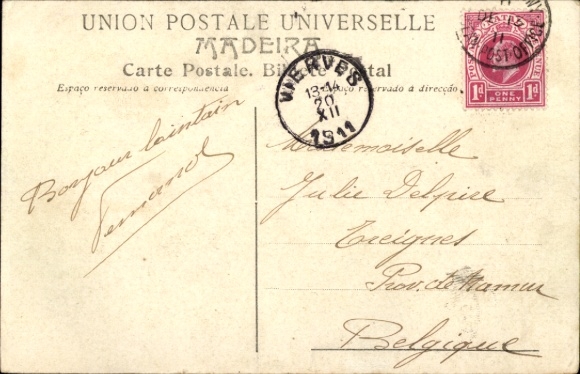 UNION POSTALE UNIVERSELLE
MADEIRA
Carte Postale. Bilhete Postal
Espaço reservado á correspondencia
Espaço reservado á direcção
POSTAGE
ONE PENNY
1d 1d
POST OFFICE
11
VIERVES
13-14
20
XII
1911
Bonjour lointain
Fernand
Mademoiselle
Julie Delpire
Treignes
Prov. de Namur
Belgique